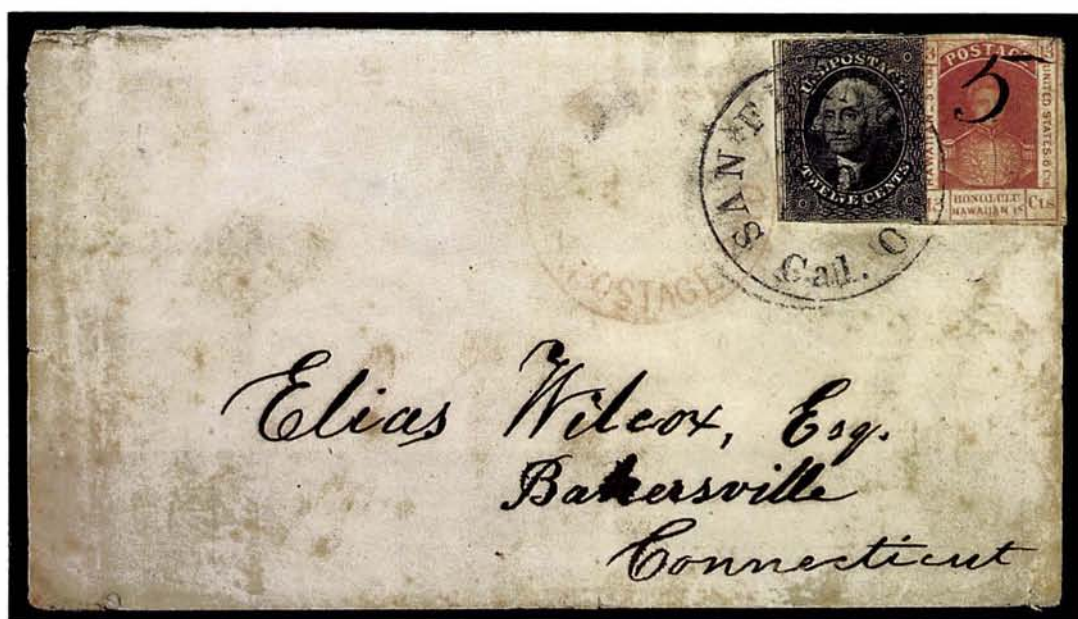 U.S. POSTAGE
TWELVE CENTS
POSTAGE
5
HAWAIIAN 5 Cts
UNITED STATES 8 Cts
HONOLULU
HAWAIIAN
Cts
13
SAN F
Cal. O
POSTAGE
Elias Wilcox, Esq.
Bakersville
Connecticut